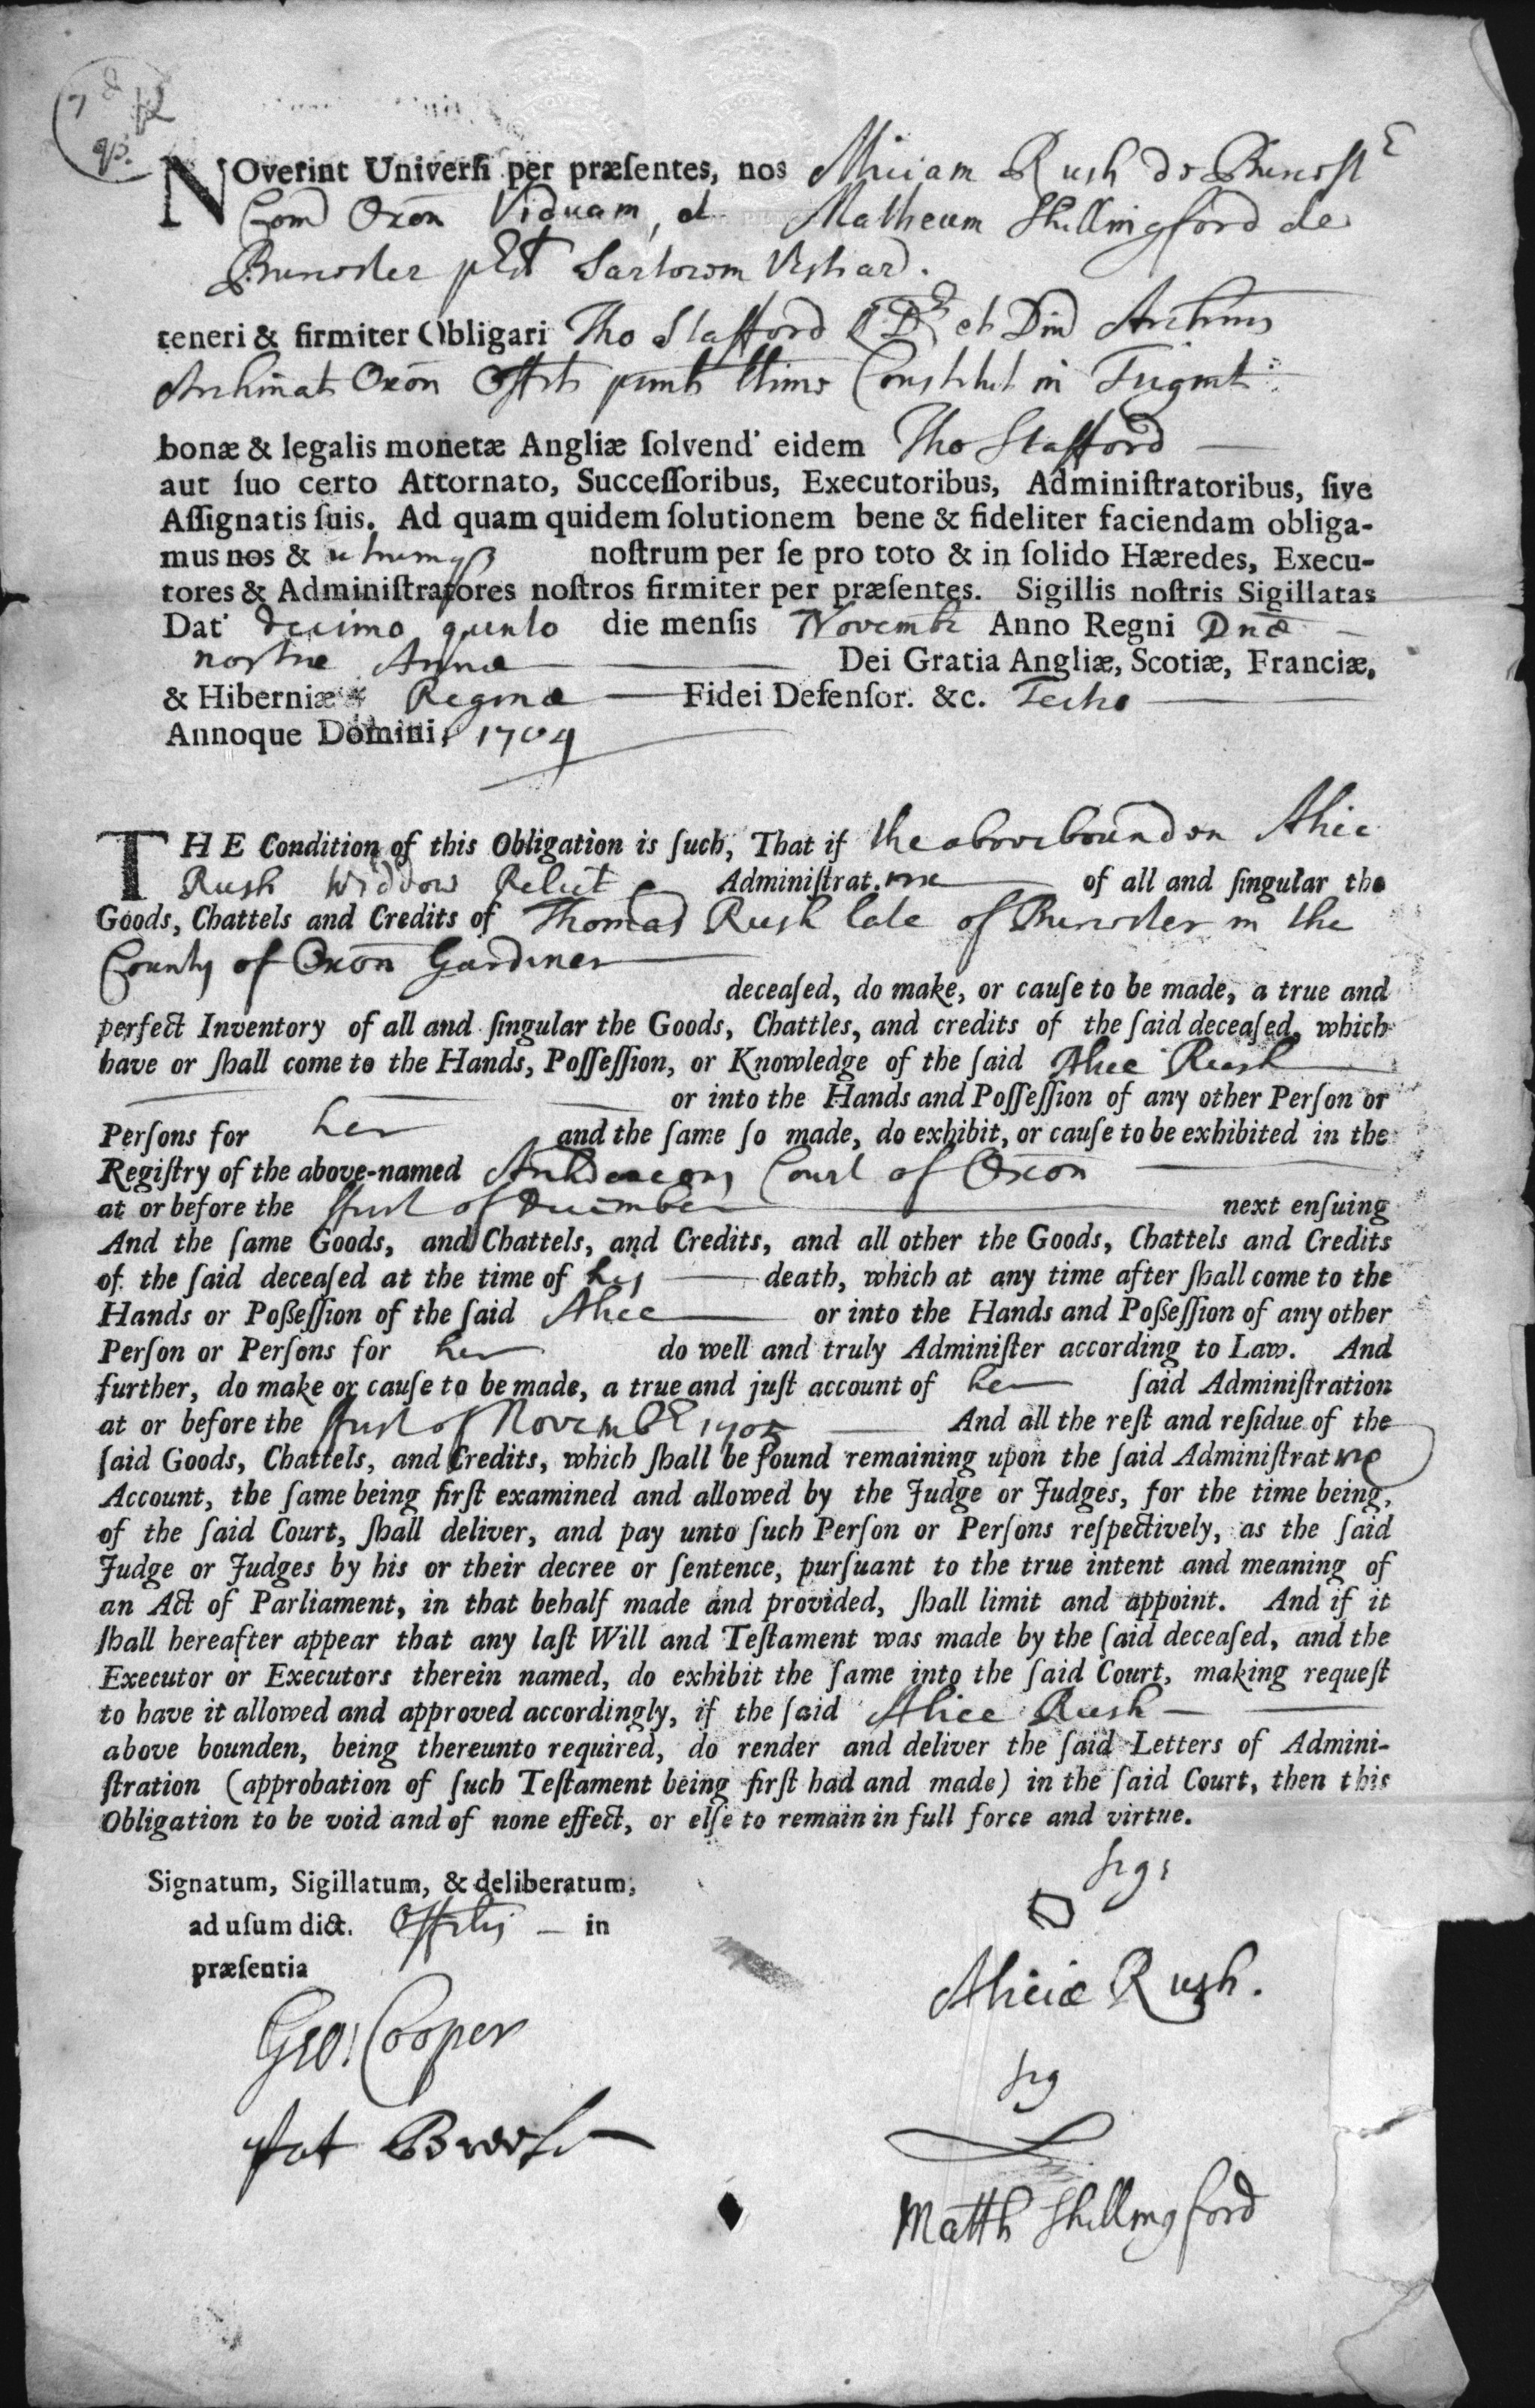 NOverint Universi per præsentes, nos Aliciam Rush de Burcestr
Com Oxon Viduam, et Matheum Shillingford de
Burcester Sartorem Vestiar.
teneri & firmiter Obligari Tho Stafford et
Oxon Constitut in
bonæ & legalis monetæ Angliæ solvend' eidem Tho Stafford
aut suo certo Attornato, Successoribus, Executoribus, Administratoribus, sive
Assignatis suis. Ad quam quidem solutionem bene & fideliter faciendam obliga-
mus nos & nostrum per se pro toto & in solido Hæredes, Execu-
tores & Administratores nostros firmiter per præsentes. Sigillis nostris Sigillatas
Dat' decimo quinto die mensis Novembr Anno Regni Dnæ
nostræ Annæ Dei Gratia Angliæ, Scotiæ, Franciæ,
& Hiberniæ Reginæ Fidei Defensor. &c. Tertio
Annoque Domini, 1704
THE Condition of this Obligation is such, That if the abovebounden Alice
Rush Widdow Relict Administrat.rix of all and singular the
Goods, Chattels and Credits of Thomas Rush late of Burcester in the
County of Oxon Gardiner
deceased, do make, or cause to be made, a true and
perfect Inventory of all and singular the Goods, Chattles, and credits of the said deceased, which
have or shall come to the Hands, Possession, or Knowledge of the said Alice Rush
or into the Hands and Possession of any other Person or
Persons for her and the same so made, do exhibit, or cause to be exhibited in the
Registry of the above-named Archdeacons Court of Oxon
at or before the first of December next ensuing
And the same Goods, and Chattels, and Credits, and all other the Goods, Chattels and Credits
of the said deceased at the time of his death, which at any time after shall come to the
Hands or Possession of the said Alice or into the Hands and Possession of any other
Person or Persons for her do well and truly Administer according to Law. And
further, do make or cause to be made, a true and just account of her said Administration
at or before the first of Novembr 1705 And all the rest and residue of the
said Goods, Chattels, and Credits, which shall be found remaining upon the said Administratrix
Account, the same being first examined and allowed by the Judge or Judges, for the time being,
of the said Court, shall deliver, and pay unto such Person or Persons respectively, as the said
Judge or Judges by his or their decree or sentence, pursuant to the true intent and meaning of
an Act of Parliament, in that behalf made and provided, shall limit and appoint. And if it
shall hereafter appear that any last Will and Testament was made by the said deceased, and the
Executor or Executors therein named, do exhibit the same into the said Court, making request
to have it allowed and approved accordingly, if the said Alice Rush
above bounden, being thereunto required, do render and deliver the said Letters of Admini-
stration (approbation of such Testament being first had and made) in the said Court, then this
Obligation to be void and of none effect, or else to remain in full force and virtue.
Signatum, Sigillatum, & deliberatum,
ad usum dict. in
præsentia
Geo: Cooper
sig:
Aliciæ Rush.
sig
Matth Shillingford